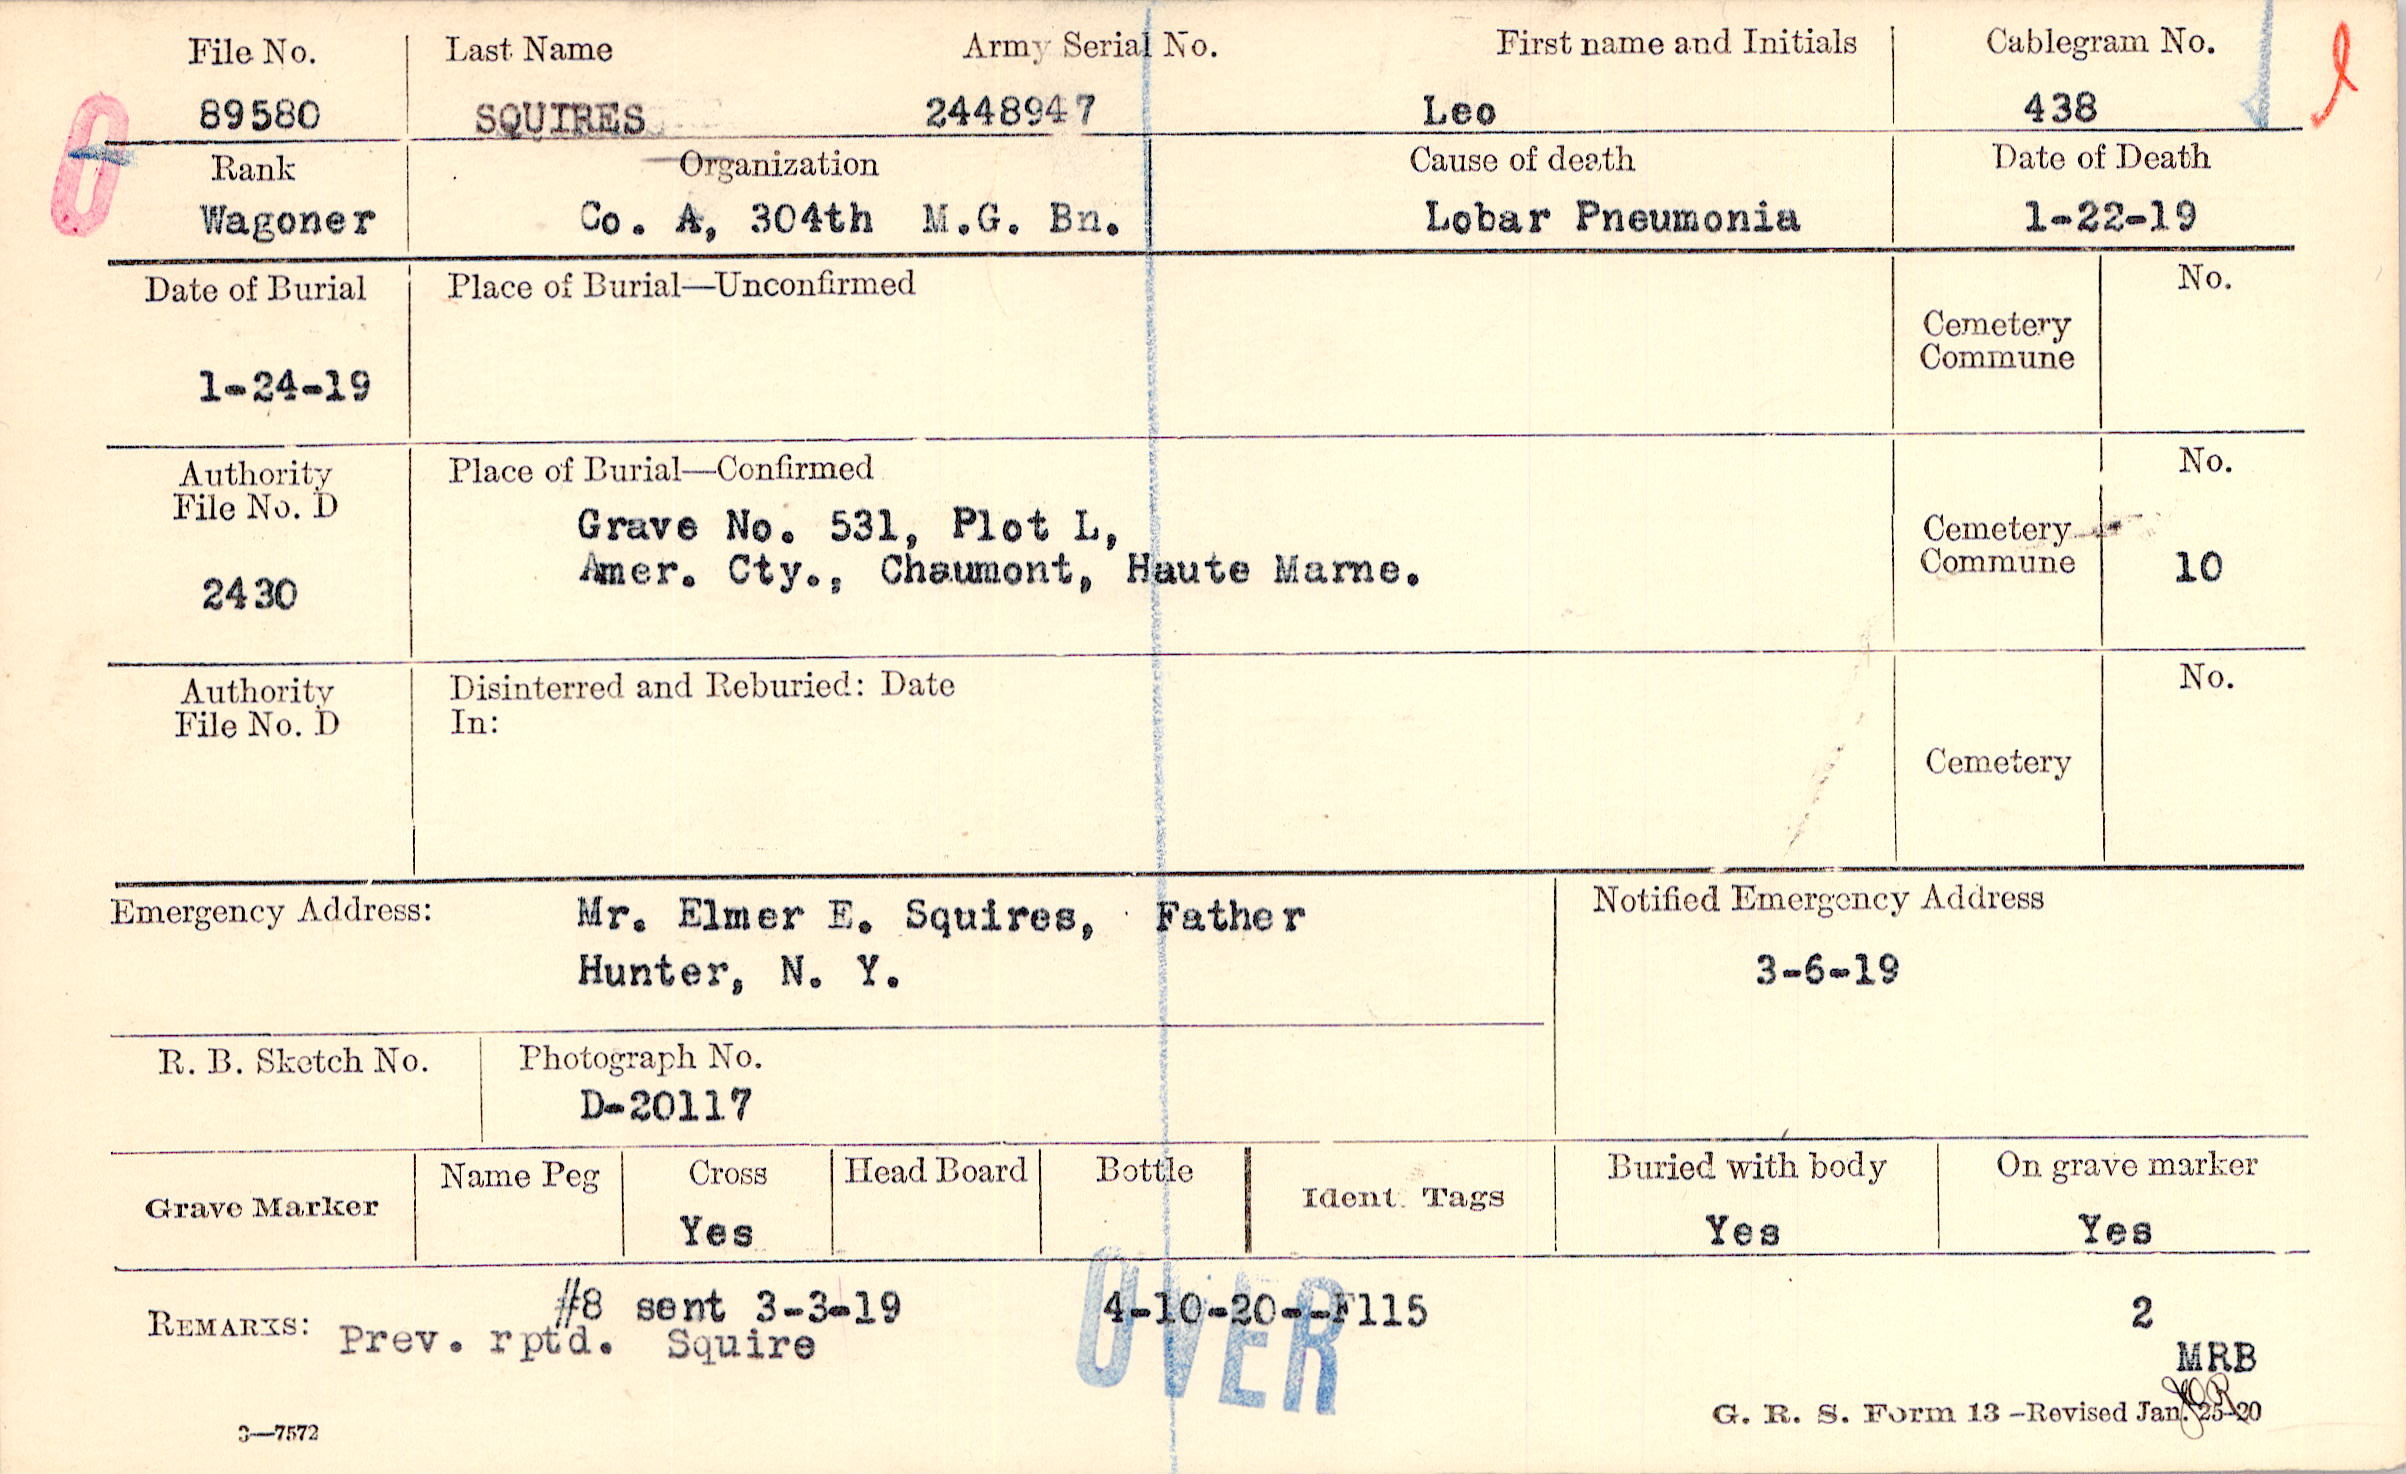 File No. Last Name Army Serial No. First name and Initials Cablegram No.
89580 SQUIRES 2448947 Leo 438
Rank Organization Cause of death Date of Death
Wagoner Co. A, 304th M.G. Bn. Lobar Pneumonia 1-22-19
Date of Burial Place of Burial—Unconfirmed No.
Cemetery
Commune
1-24-19
Authority Place of Burial—Confirmed No.
File No. D
Grave No. 531, Plot L, Cemetery
Amer. Cty., Chaumont, Haute Marne. Commune 10
2430
Authority Disinterred and Reburied: Date No.
File No. D In:
Cemetery
Emergency Address: Mr. Elmer E. Squires, Father Notified Emergency Address
Hunter, N. Y. 3-6-19
R. B. Sketch No. Photograph No.
D-20117
Grave Marker Name Peg Cross Head Board Bottle Ident. Tags Buried with body On grave marker
Yes Yes Yes
REMARKS: #8 sent 3-3-19 4-10-20--F115 2
Prev. rptd. Squire MRB
OVER
3—7572 G. R. S. Form 13 -Revised Jan. 25-20